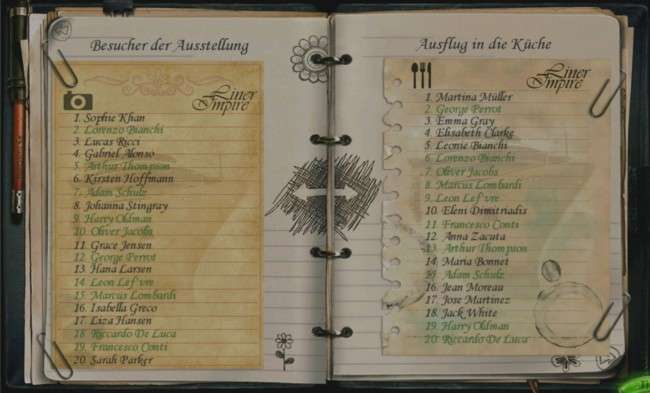 Besucher der Ausstellung
Liner Empire
1. Sophie Khan
2. Lorenzo Bianchi
3. Lucas Ricci
4. Gabriel Alonso
5. Arthur Thompson
6. Kirsten Hoffmann
7. Adam Schulz
8. Johanna Stingray
9. Harry Oldman
10. Oliver Jacobs
11. Grace Jensen
12. George Perrot
13. Hana Larsen
14. Leon Lef'vre
15. Marcus Lombardi
16. Isabella Greco
17. Liza Hansen
18. Riccardo De Luca
19. Francesco Conti
20. Sarah Parker
Ausflug in die Küche
Liner Empire
1. Martina Müller
2. George Perrot
3. Emma Gray
4. Elisabeth Clarke
5. Leonie Bianchi
6. Lorenzo Bianchi
7. Oliver Jacobs
8. Marcus Lombardi
9. Leon Lef'vre
10. Eleni Dimitriadis
11. Francesco Conti
12. Anna Zacuta
13. Arthur Thompson
14. Maria Bonnet
15. Adam Schulz
16. Jean Moreau
17. Jose Martinez
18. Jack White
19. Harry Oldman
20. Riccardo De Luca